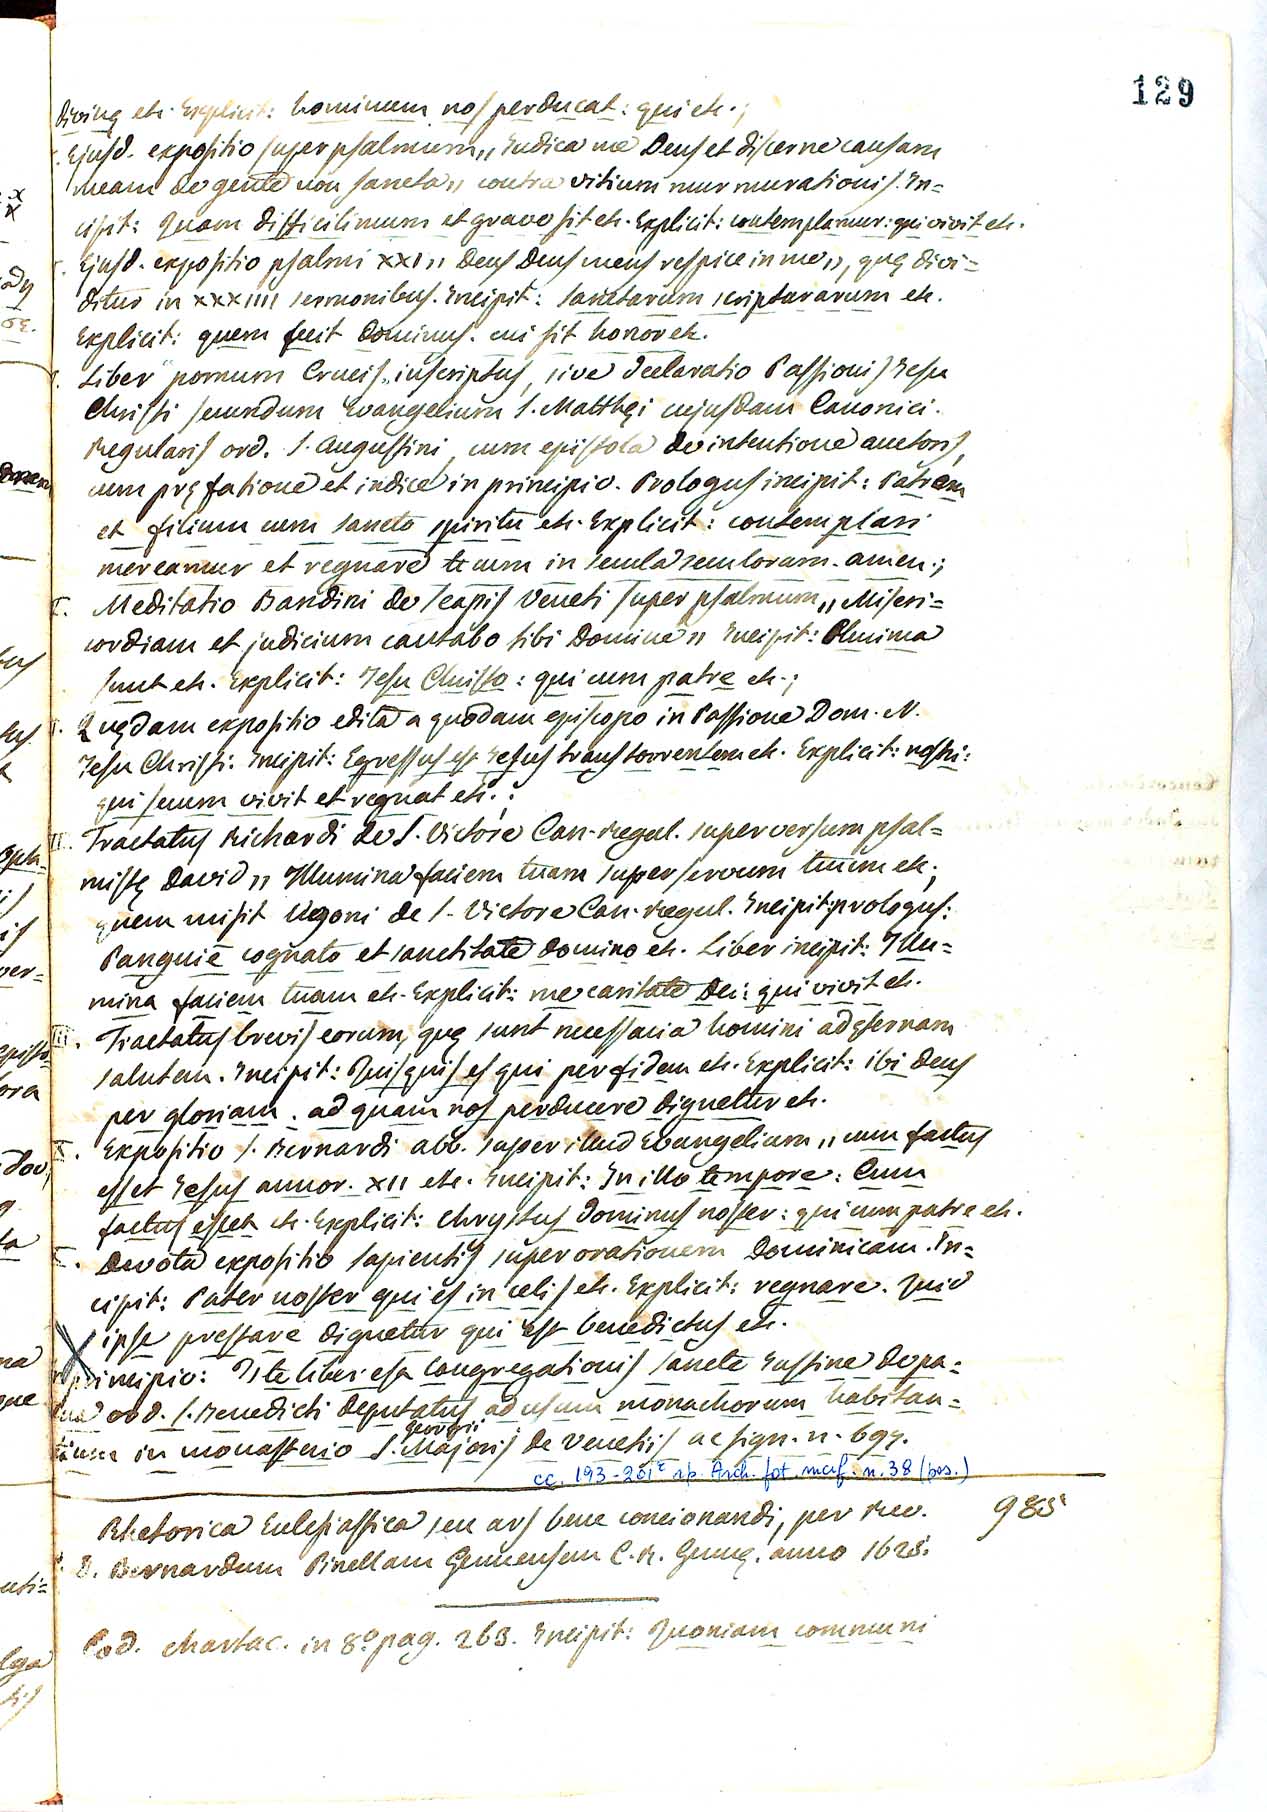 129
divinę etc. Explicit: hominum nos perducat: qui etc.;
Ejusd. expositio super psalmum „Iudica me Deus et discerne causam
meam de gente non sancta„ contra vitium murmurationis. In=
cipit: Quam difficilimum et grave sit etc. Explicit: contemplamur: qui vivit etc.
Ejusd. expositio psalmi XXI „Deus Deus meus respice in me„, quę divi=
ditur in XXXIIII sermonibus. Incipit: sanctarum scripturarum etc.
Explicit: quem fecit Dominus. cui sit honor etc.
Liber „pomum Crucis„ inscriptus, sive declaratio Passionis Iesu
Christi secundum Evangelium S. Matthęi cujusdam Canonici
Regularis ord. S. Augustini, cum epistola de intentione auctoris,
cum pręfatione et indice in principio. Prologus incipit: Patrem
et filium cum sancto spiritu etc. Explicit: contemplari
mereamur et regnare tecum in secula seculorum. amen.;
Meditatio Bandini de Scapis Veneti super psalmum „Miseri=
cordiam et judicium cantabo tibi Domine„ Incipit: Plurima
sunt etc. Explicit: Iesu Christo: qui cum patre etc.;
Quędam expositio edita a quodam episcopo in Passione Dom. N.
Iesu Christi. Incipit: Egressus est Iesus trans torrentem etc. Explicit: nostri:
qui secum vivit et regnat etc.;
Tractatus Richardi de S. Victore Can. Regul. super versum psal=
mistę David „Illumina faciem tuam super servum tuum etc;
quem misit Ugoni de S. Victore Can. Regul. Incipit prologus:
Panguie cognato et sanctitate domino etc. Liber incipit: Illu=
mina faciem tuam etc. Explicit: me caritate Dei: qui vivit etc.
III. Tractatus brevis eorum, quę sunt necessaria homini ad ęternam
salutem. Incipit: Quisquis es qui per fidem etc. Explicit: ibi Deus
per gloriam. ad quam nos perducere dignetur etc.
X. Expositio S. Bernardi abb. super illud Evangelium „cum factus
esset Iesus annor. XII etc. Incipit: In illo tempore: Cum
factus esset etc. Explicit: Chrystus dominus noster: qui cum patre etc.
X. Devota expositio sapientis super orationem Dominicam. In=
cipit: Pater noster qui es in celis etc. Explicit: regnare. Quid
ipse prestare dignetur qui est benedictus etc.
principio: Iste liber est Congregationis sancte Iustine de pa=
dua ord. S. Benedicti deputatus ad usum monachorum habitan=
georgii
tium in monasterio S. Majoris de Venetiis ac sign. n. 699.
cc. 193-201r rip. Arch. fot. marc. n. 38 (pos.)
Rhetorica Eulesiastica seu ars bene concionandi, per Rev. 985
D. Bernardum Pinellam Genuensem C. R. Genuę. anno 1628.
Cod. chartac. in 8º pag. 263. Incipit: Quoniam communi